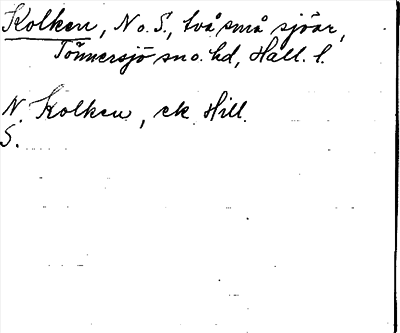 Kolken, N o. S., två små sjöar,
Tönnersjö sn o. hd, Hall. l.
N. Kolken, ek Hill.
S.